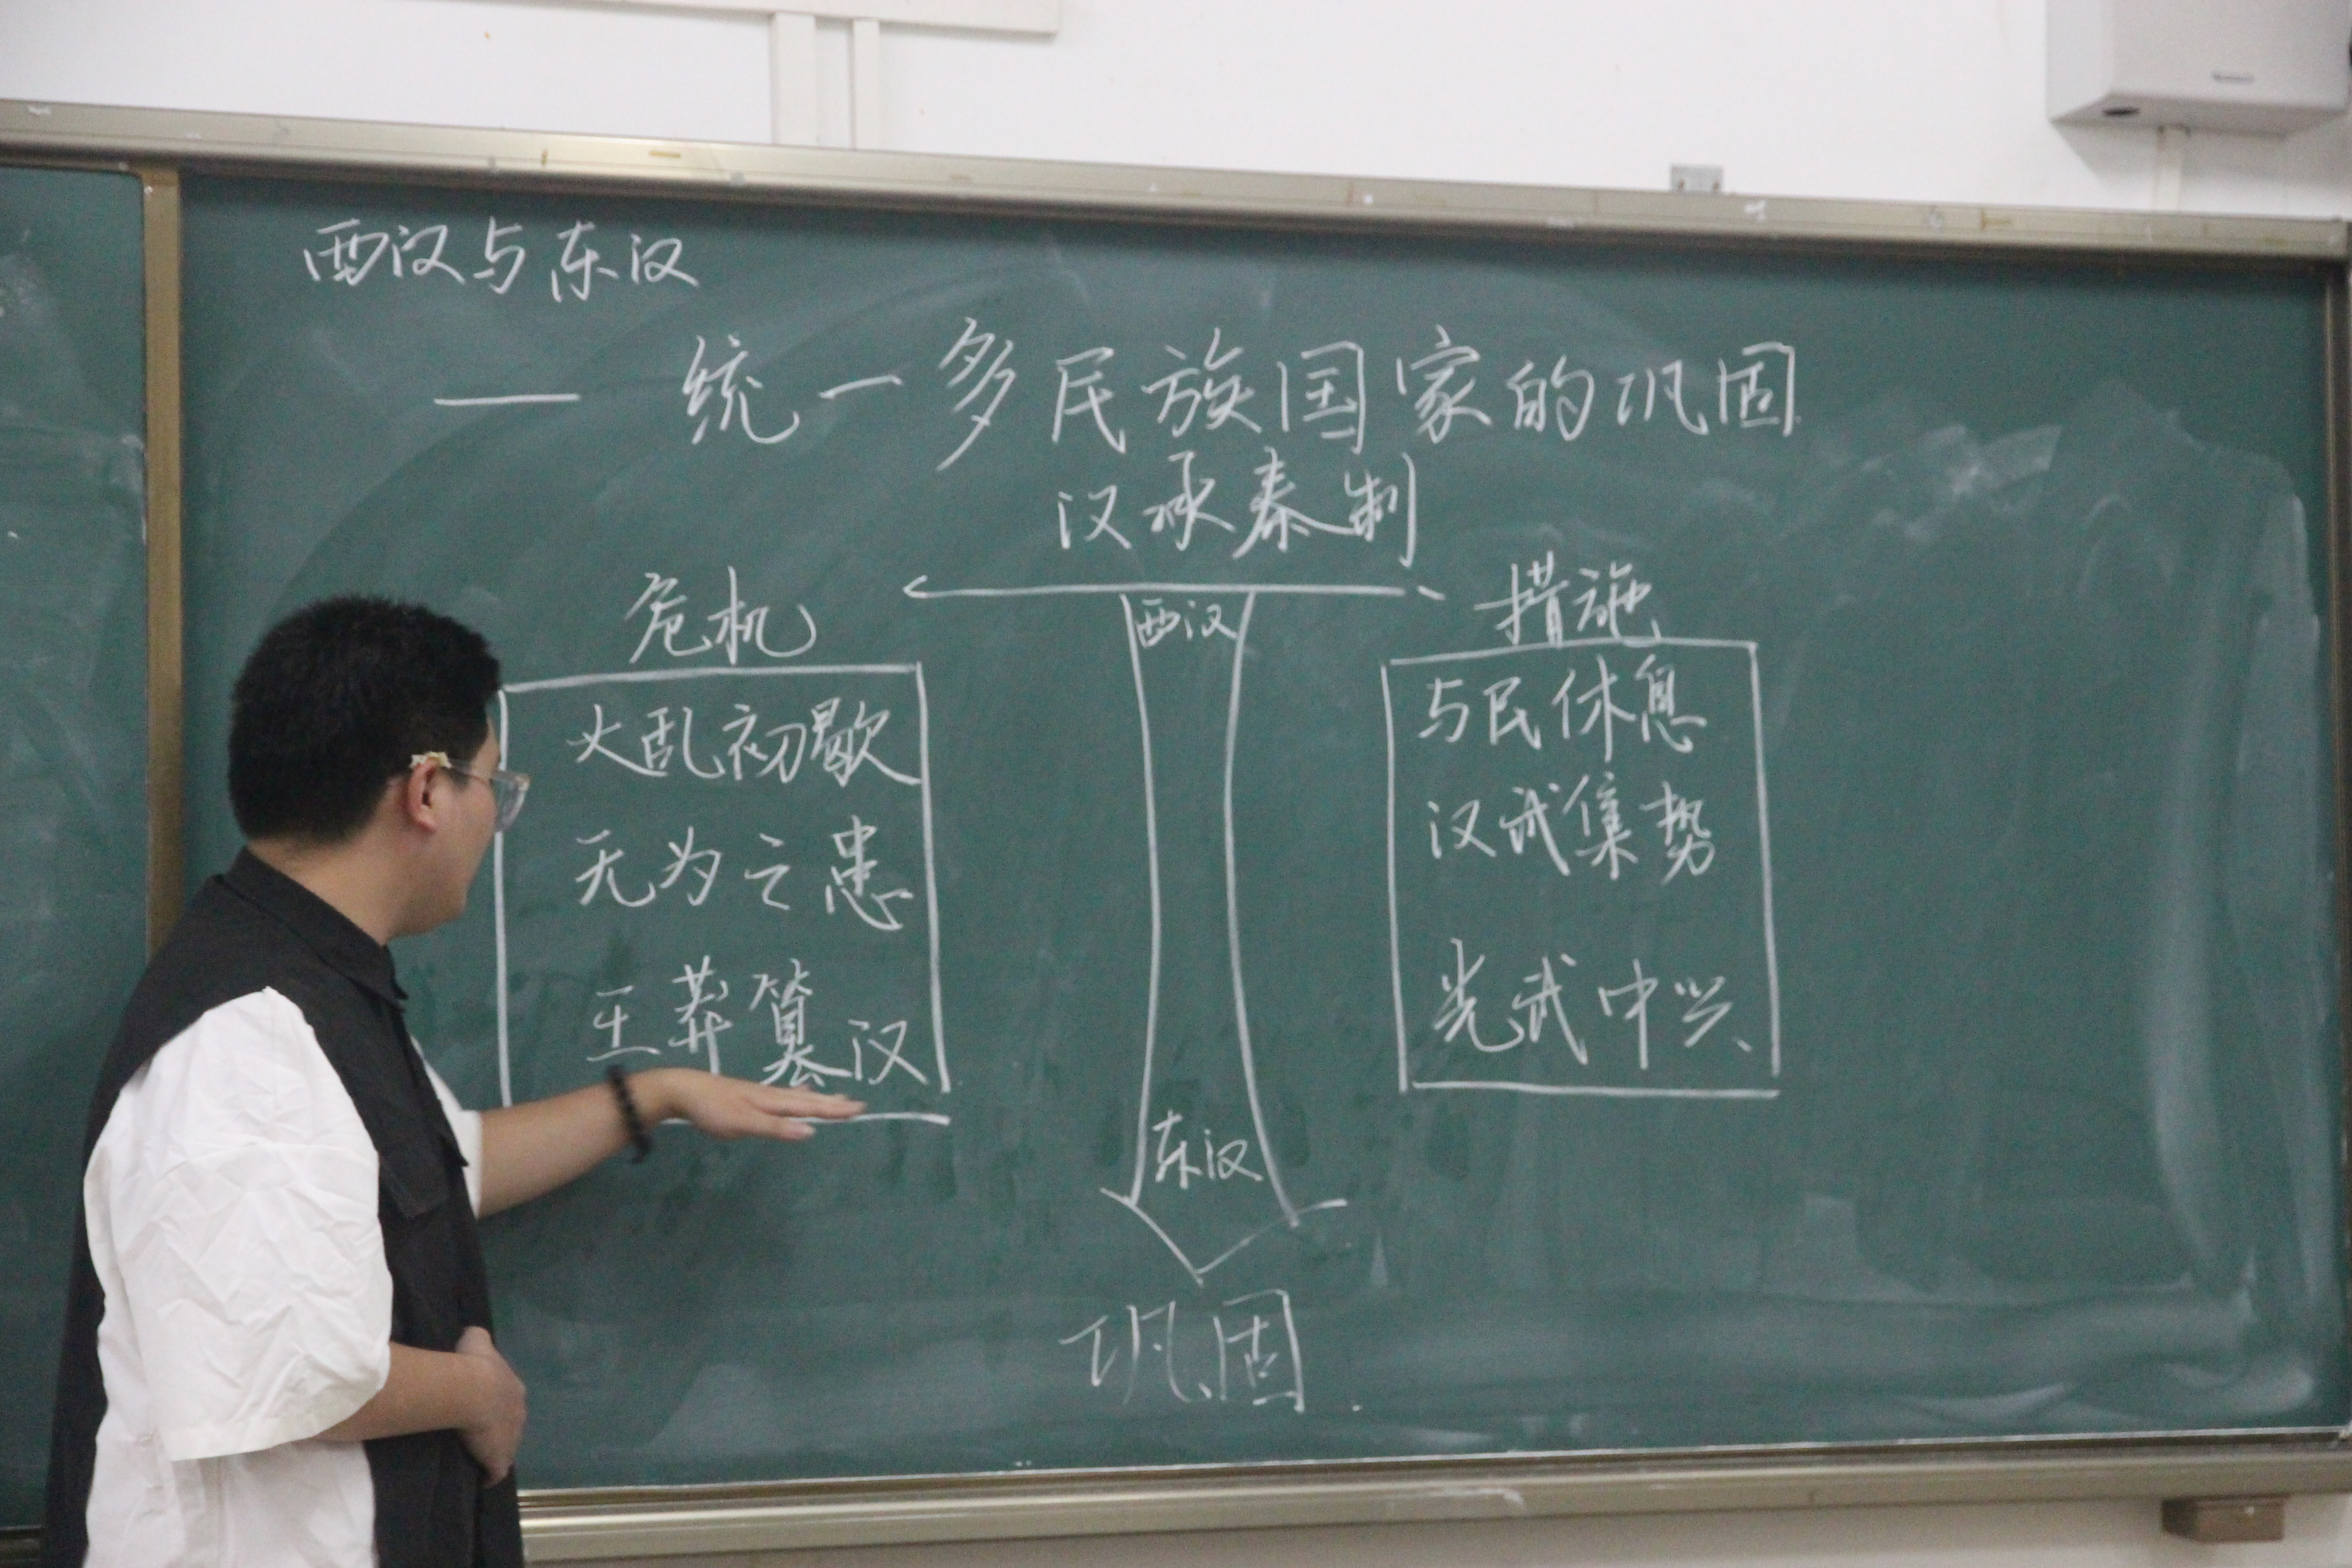 西汉与东汉
— 统一多民族国家的巩固
汉承秦制
危机
大乱初歇
无为之患
王莽篡汉
西汉
东汉
措施
与民休息
汉武集势
光武中兴
巩固.